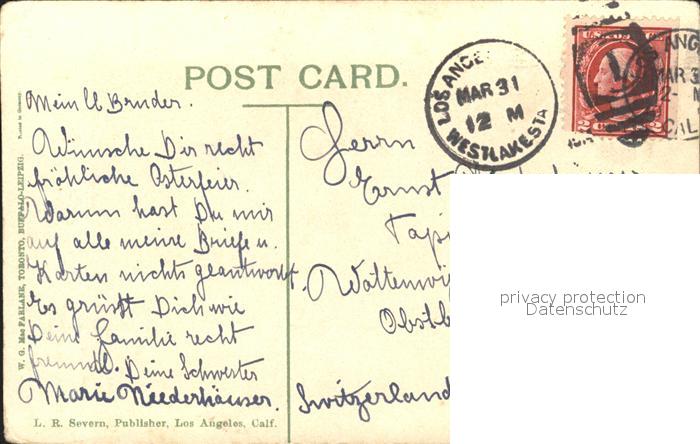 POST CARD.
Mein lb Bruder.
Wünsche Dir recht
fröhliche Osterfeier.
Warum hast Du mir
auf alle meine Briefe u.
Karten nichts geantwortet.
Es grüsst Dich wie
Deine Familie recht
freundl. Deine Schwester
Marie Niederhäuser.
Herrn
Ernst
Tapi
Wattenwi
Obstb
Switzerland
LOS ANGE
MAR 31
12 M
WESTLAKE STA
ANG
MAR 3
2- M
CAL
privacy protection
Datenschutz
Printed in Germany.
W. G. Mac FARLANE, TORONTO, BUFFALO-LEIPZIG.
L. R. Severn, Publisher, Los Angeles, Calf.